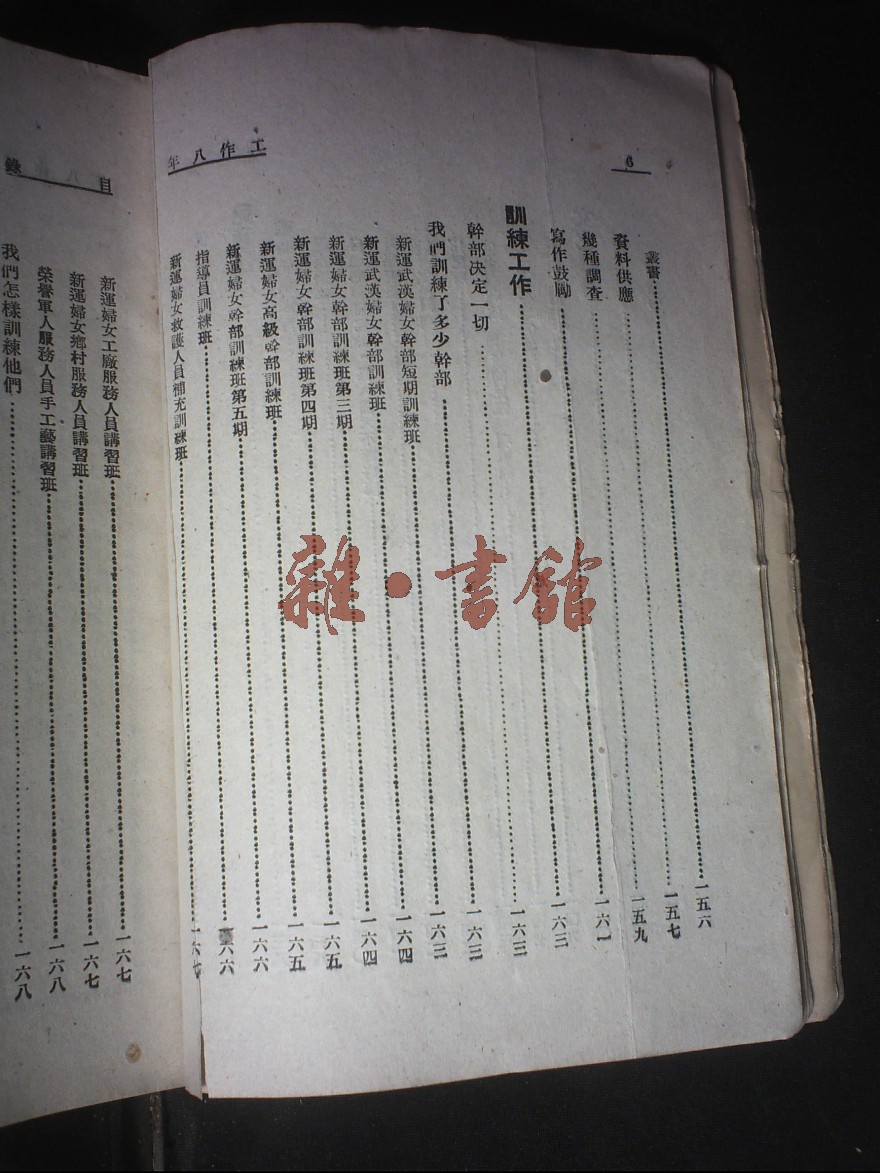 6
工作八年
叢書 一五六
資料供應 一五七
幾種調查 一五九
寫作鼓勵 一六一
訓練工作 一六三
幹部決定一切 一六三
我們訓練了多少幹部 一六三
新運武漢婦女幹部短期訓練班 一六三
新運武漢婦女幹部訓練班 一六四
新運婦女幹部訓練班第三期 一六四
新運婦女幹部訓練班第四期 一六五
新運婦女高級幹部訓練班 一六五
新運婦女幹部訓練班第五期 一六六
指導員訓練班 六六
新運婦女救護人員補充訓練班 一六七
目錄
新運婦女工廠服務人員講習班 一六七
新運婦女鄉村服務人員講習班 一六七
榮譽軍人服務人員手工藝講習班 一六八
我們怎樣訓練他們 一六八
雜·書館